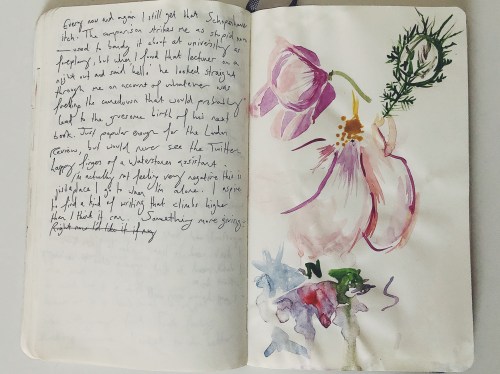 Every now and again I still get that Schopenhauer
itch. The comparison strikes me as stupid now
— used to bandy it about at university as
foreplay, but when I found that lecturer on a
out and said 'hello' he looked straight
through me on account of whatever was
fuelling the comedown that would probably
lead to the gruesome birth of his next
book. Just popular enough for the London
Review, but would never see the Twitter-
happy finger of a Waterstones assistant.
actually not feeling very negative this is
just a place I go to when I'm alone. I aspire
to find a kind of writing that climbs higher
than I think it can. Something more
Right now I'd like it if my
N